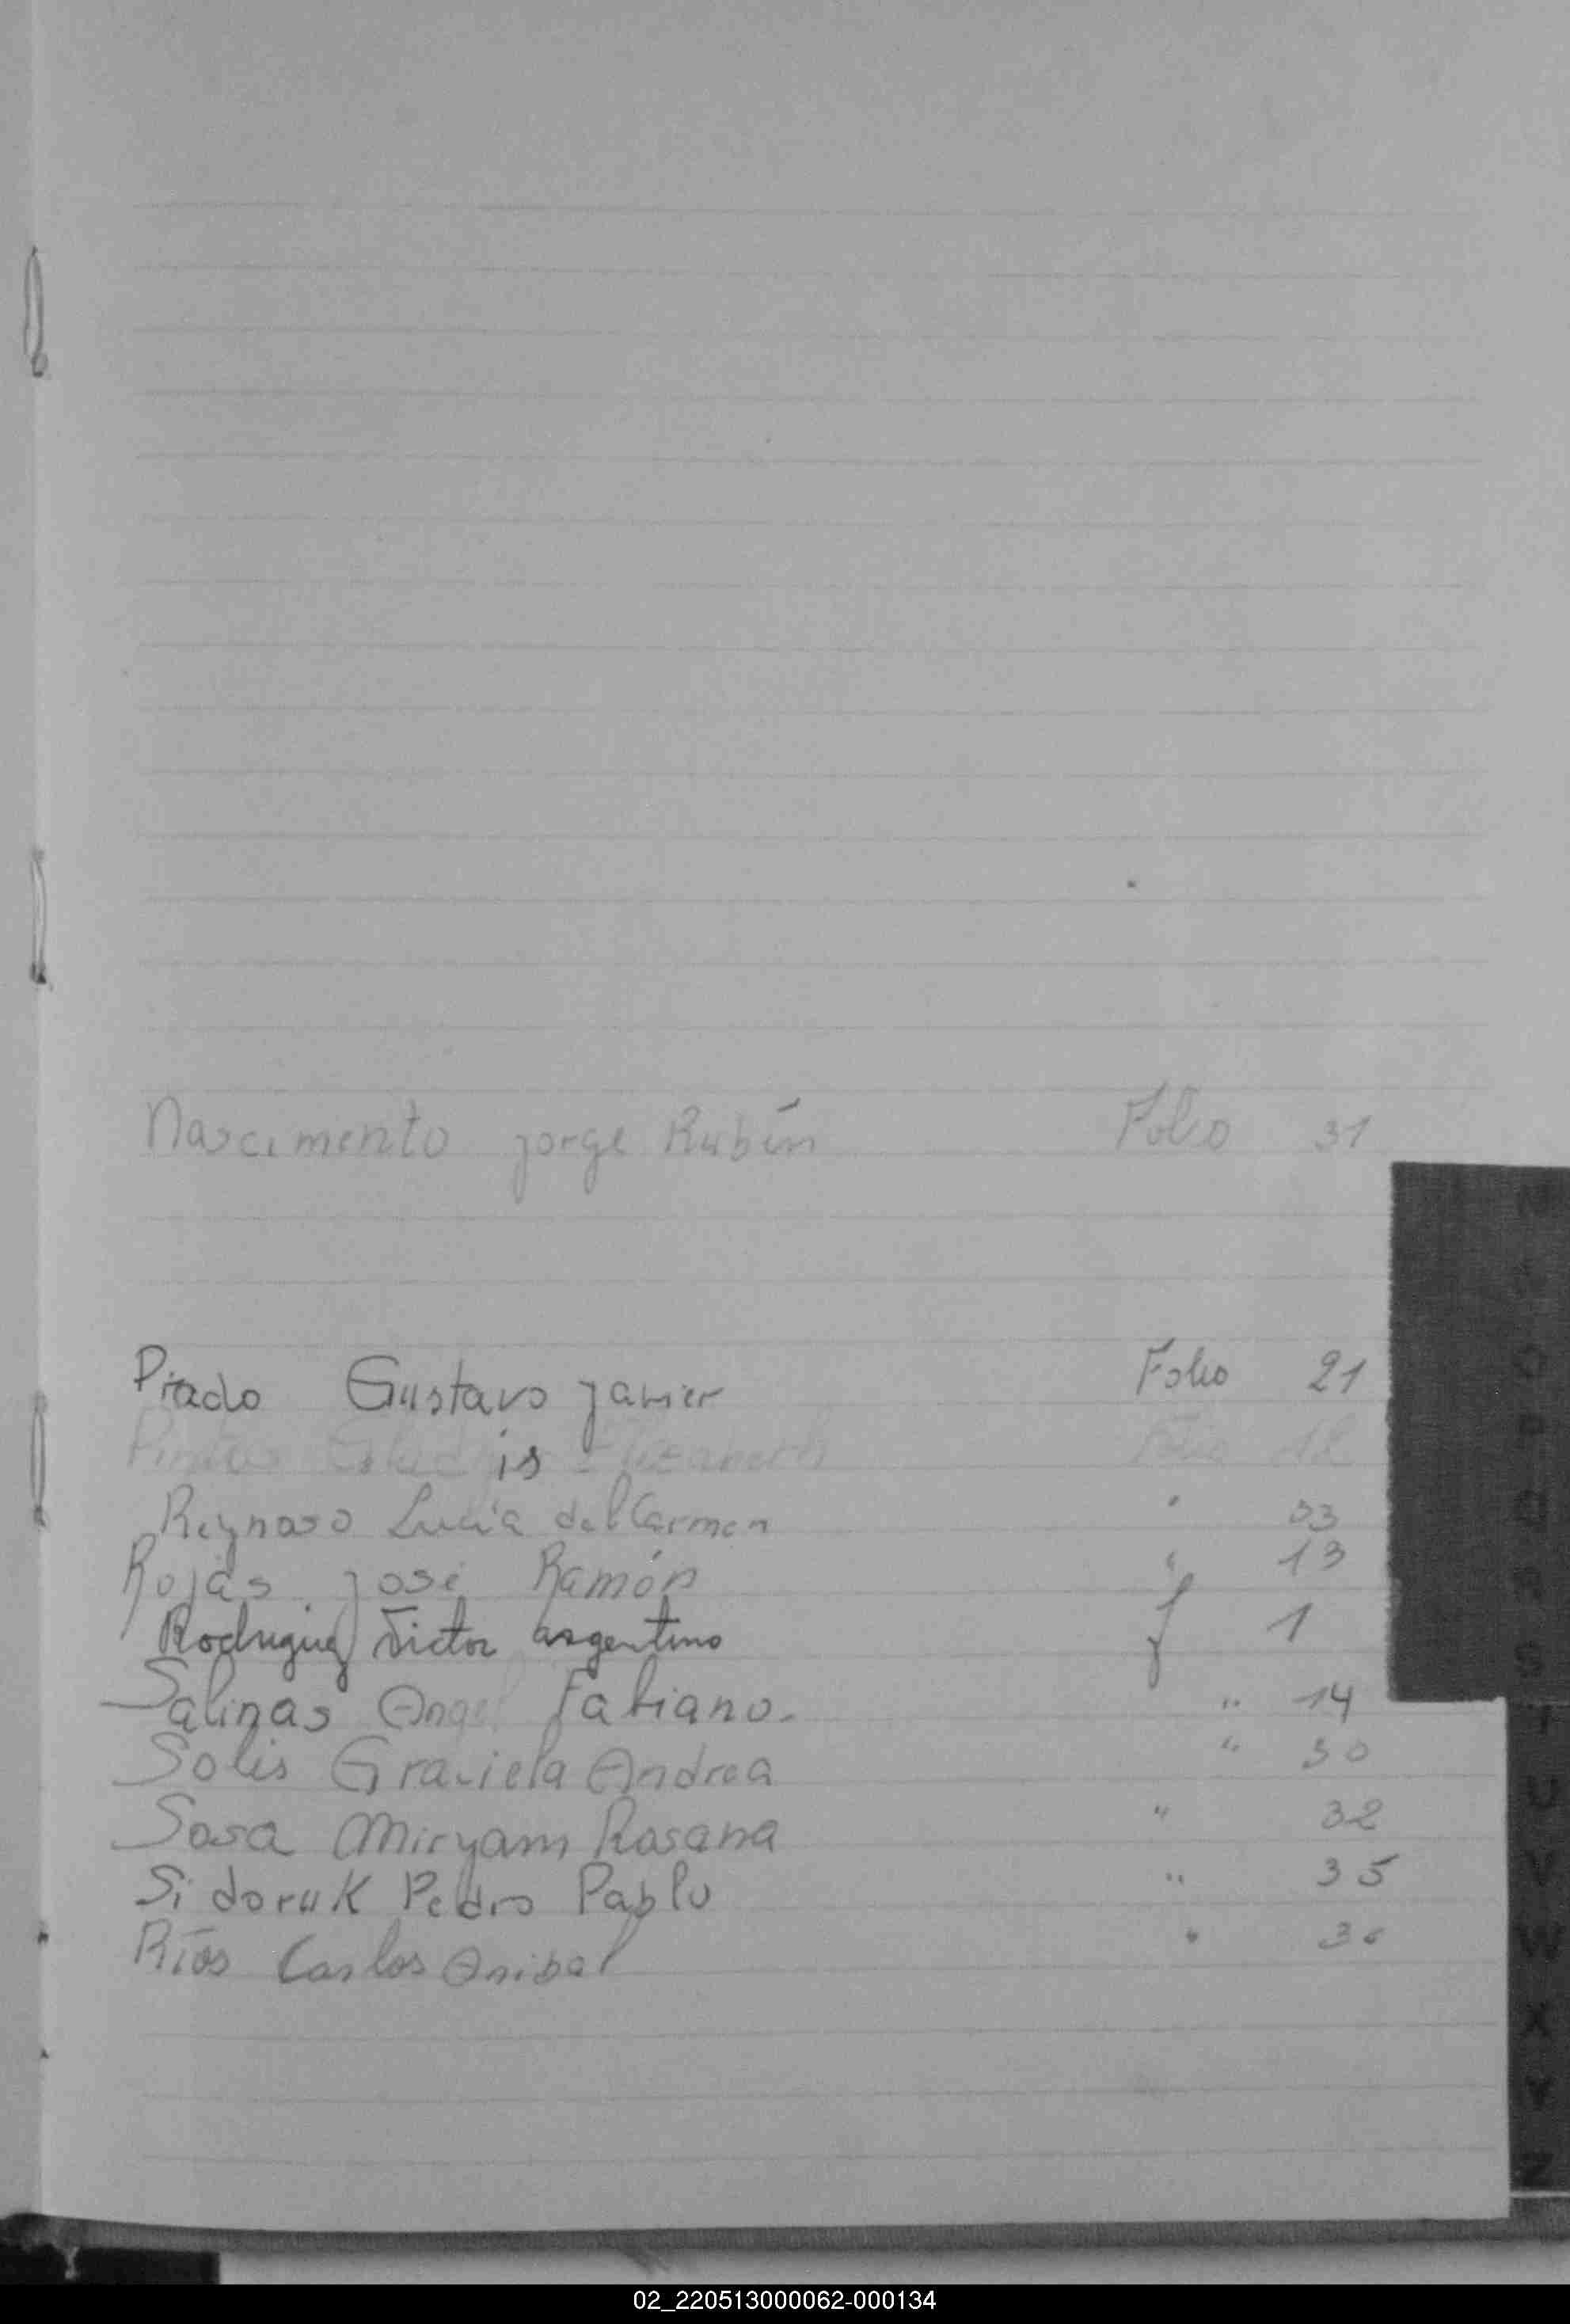 Nascimento Jorge Rubén Folio 31
Prado Gustavo Javier Folio 21
Elizabeth Folio 12
Reynoso Lucía del Carmen " 33
Rojas José Ramón " 13
Rodriguez Victor argentino f 1
Salinas Angel Fabiano. " 14
Solis Graciela Andrea " 30
Sosa Miryam Rosana " 32
Sidoruk Pedro Pablo " 35
Ríos Carlos Anibal " 36
N
O
P
Q
R
S
T
U
V
W
X
Y
Z
02_220513000062-000134